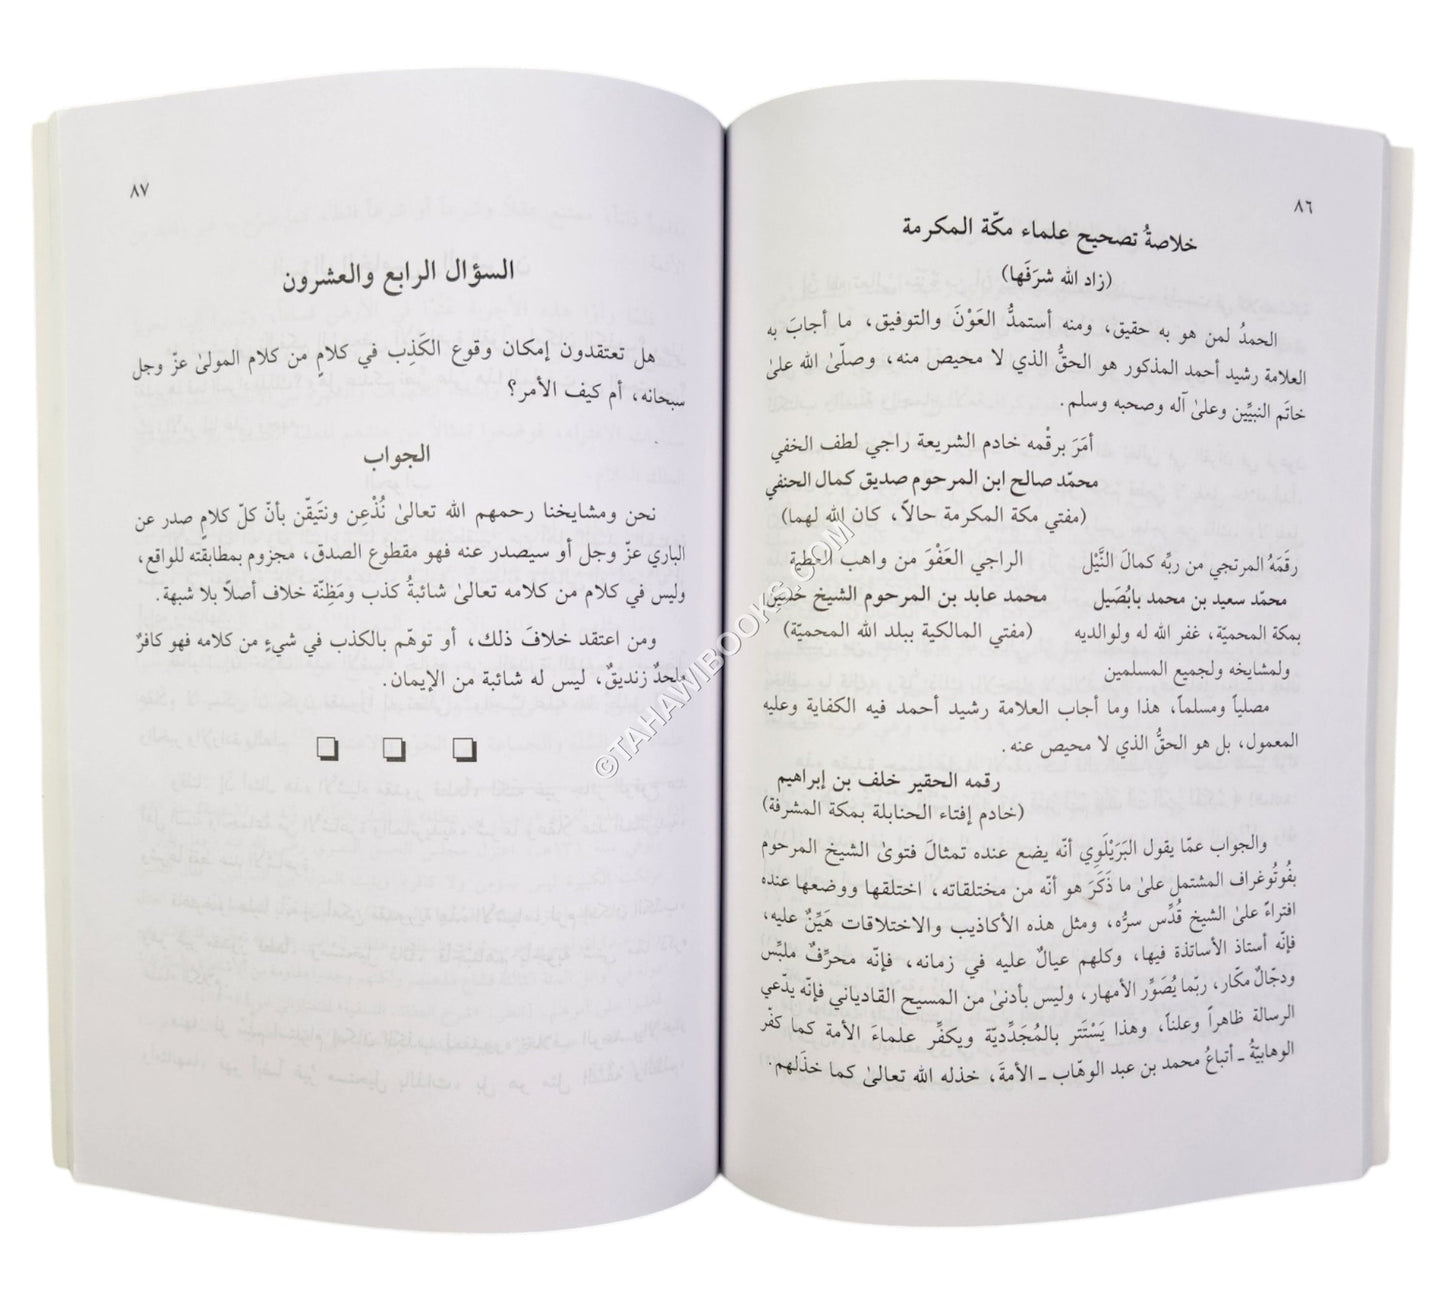 ٨٦
خلاصةُ تصحيح علماء مكّة المكرمة
(زاد الله شرَفَها)
الحمدُ لمن هو به حقيق، ومنه أستمدُّ العَوْنَ والتوفيق، ما أجابَ به
العلامة رشيد أحمد المذكور هو الحقُّ الذي لا محيص منه، وصلّىٰ الله علىٰ
خاتَم النبيِّين وعلىٰ آله وصحبه وسلم.
أمَرَ برقْمه خادم الشريعة راجي لطف الخفي
محمّد صالح ابن المرحوم صديق كمال الحنفي
(مفتي مكة المكرمة حالاً، كان الله لهما)
رقمَهُ المرتجي من ربِّه كمالَ النَّيْل الراجي العَفْوَ من واهب العطية
محمّد سعيد بن محمد بابُصَيل محمد عابد بن المرحوم الشيخ حسين
بمكة المحميّة، غفر الله له ولوالديه (مفتي المالكية ببلد الله المحميّة)
ولمشايخه ولجميع المسلمين
مصلياً ومسلماً، هذا وما أجاب العلامة رشيد أحمد فيه الكفاية وعليه
المعمول، بل هو الحقُّ الذي لا محيص عنه.
رقمه الحقير خلف بن إبراهيم
(خادم إفتاء الحنابلة بمكة المشرفة)
والجواب عمّا يقول البَرَيْلَوِي أنّه يضع عنده تمثالَ فتوىٰ الشيخ المرحوم
بفُوتُوغراف المشتمل علىٰ ما ذَكَرَ هو أنّه من مختلقاته، اختلقها ووضعها عنده
افتراءً علىٰ الشيخ قُدِّس سرُّه، ومثل هذه الأكاذيب والاختلاقات هَيِّنٌ عليه،
فإنّه أستاذ الأساتذة فيها، وكلهم عيالٌ عليه في زمانه، فإنّه محرِّفٌ ملبِّس
ودجّالٌ مكّار، ربّما يُصَوِّر الأمهار، وليس بأدنىٰ من المسيح القادياني فإنّه يدّعي
الرسالة ظاهراً وعلناً، وهذا يَسْتَتر بالمُجَدِّديّة ويكفِّر علماءَ الأمة كما كفّر
الوهابيّةُ ـ أتباعُ محمد بن عبد الوهّاب ـ الأمةَ، خذله الله تعالىٰ كما خذَلهم.
٨٧
السؤال الرابع والعشرون
هل تعتقدون إمكان وقوع الكَذِب في كلامٍ من كلام المولىٰ عزّ وجل
سبحانه، أم كيف الأمر؟
الجواب
نحن ومشايخنا رحمهم الله تعالىٰ نُذْعِن ونتَيقّن بأنّ كلّ كلامٍ صدر عن
الباري عزّ وجل أو سيصدر عنه فهو مقطوع الصدق، مجزوم بمطابقته للواقع،
وليس في كلام من كلامه تعالىٰ شائبةُ كذب ومَظِنّة خلاف أصلًا بلا شبهة.
ومن اعتقد خلافَ ذلك، أو توهّم بالكذب في شيءٍ من كلامه فهو كافرٌ
ملحدٌ زنديقٌ، ليس له شائبة من الإيمان.
©TAHAWIBOOKS.COM